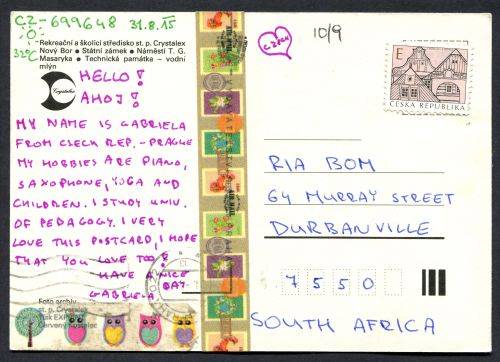 CZ-699648 31.8.15
32°C
Rekreační a školící středisko st. p. Crystalex
Nový Bor • Státní zámek • Náměstí T. G.
Masaryka • Technická památka – vodní
mlýn
Crystalex
HELLO!
AHOJ!
MY NAME IS GABRIELA
FROM CZECH REP. - PRAGUE
MY HOBBIES ARE PIANO,
SAXOPHONE, YOGA AND
CHILDREN. I STUDY UNIV.
OF PEDAGOGY. I VERY
LOVE THIS POSTCARD, I HOPE
THAT YOU LOVE TOO!
HAVE A NICE
DAY
GABRIELA
Foto archiv
st. p. Crystalex
Červený Kostelec
10/9
CZECH
E
ČESKÁ REPUBLIKA
RIA BOM
64 MURRAY STREET
DURBANVILLE
7550
SOUTH AFRICA